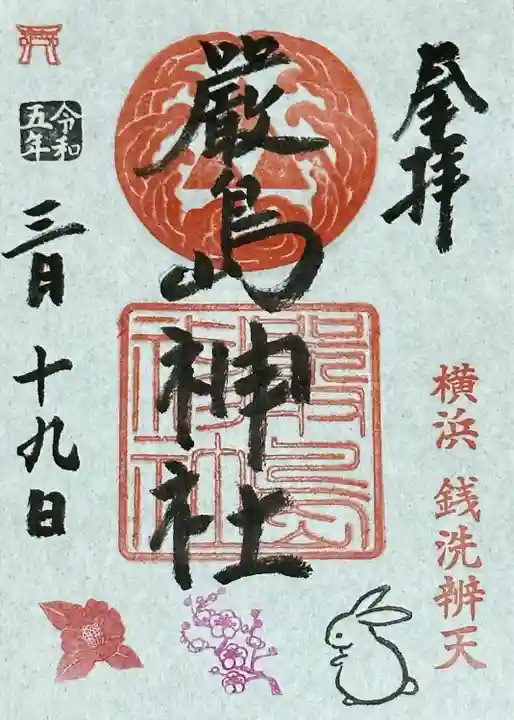 奉拝
横浜 銭洗辨天
厳島神社
厳島神社
令和
五年
三月十九日